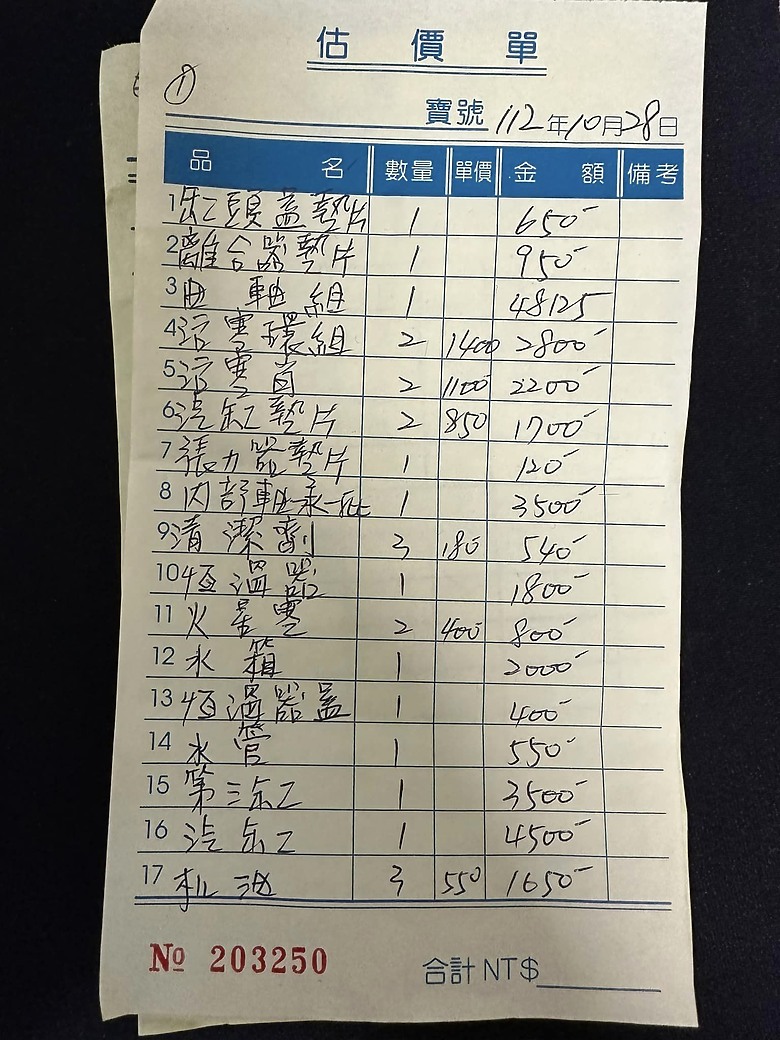 估價單
①
寶號 112年10月28日
品名 數量 單價 金額 備考
1 缸頭蓋墊片 1 650-
2 離合器墊片 1 950-
3 曲軸組 1 48125
4 活塞環組 2 1400 2800-
5 活塞肖 2 1100 2200-
6 汽缸墊片 2 850 1700-
7 張力器墊片 1 120-
8 內部軸承一批 1 3500-
9 清潔劑 3 180 540-
10 恆溫器 1 1800-
11 火星塞 2 400 800-
12 水箱 1 2000-
13 恆溫器蓋 1 400-
14 水管 1 550-
15 第三 1 3500-
16 1 4500-
17 机油 3 550 1650-
No 203250 合計 NT$